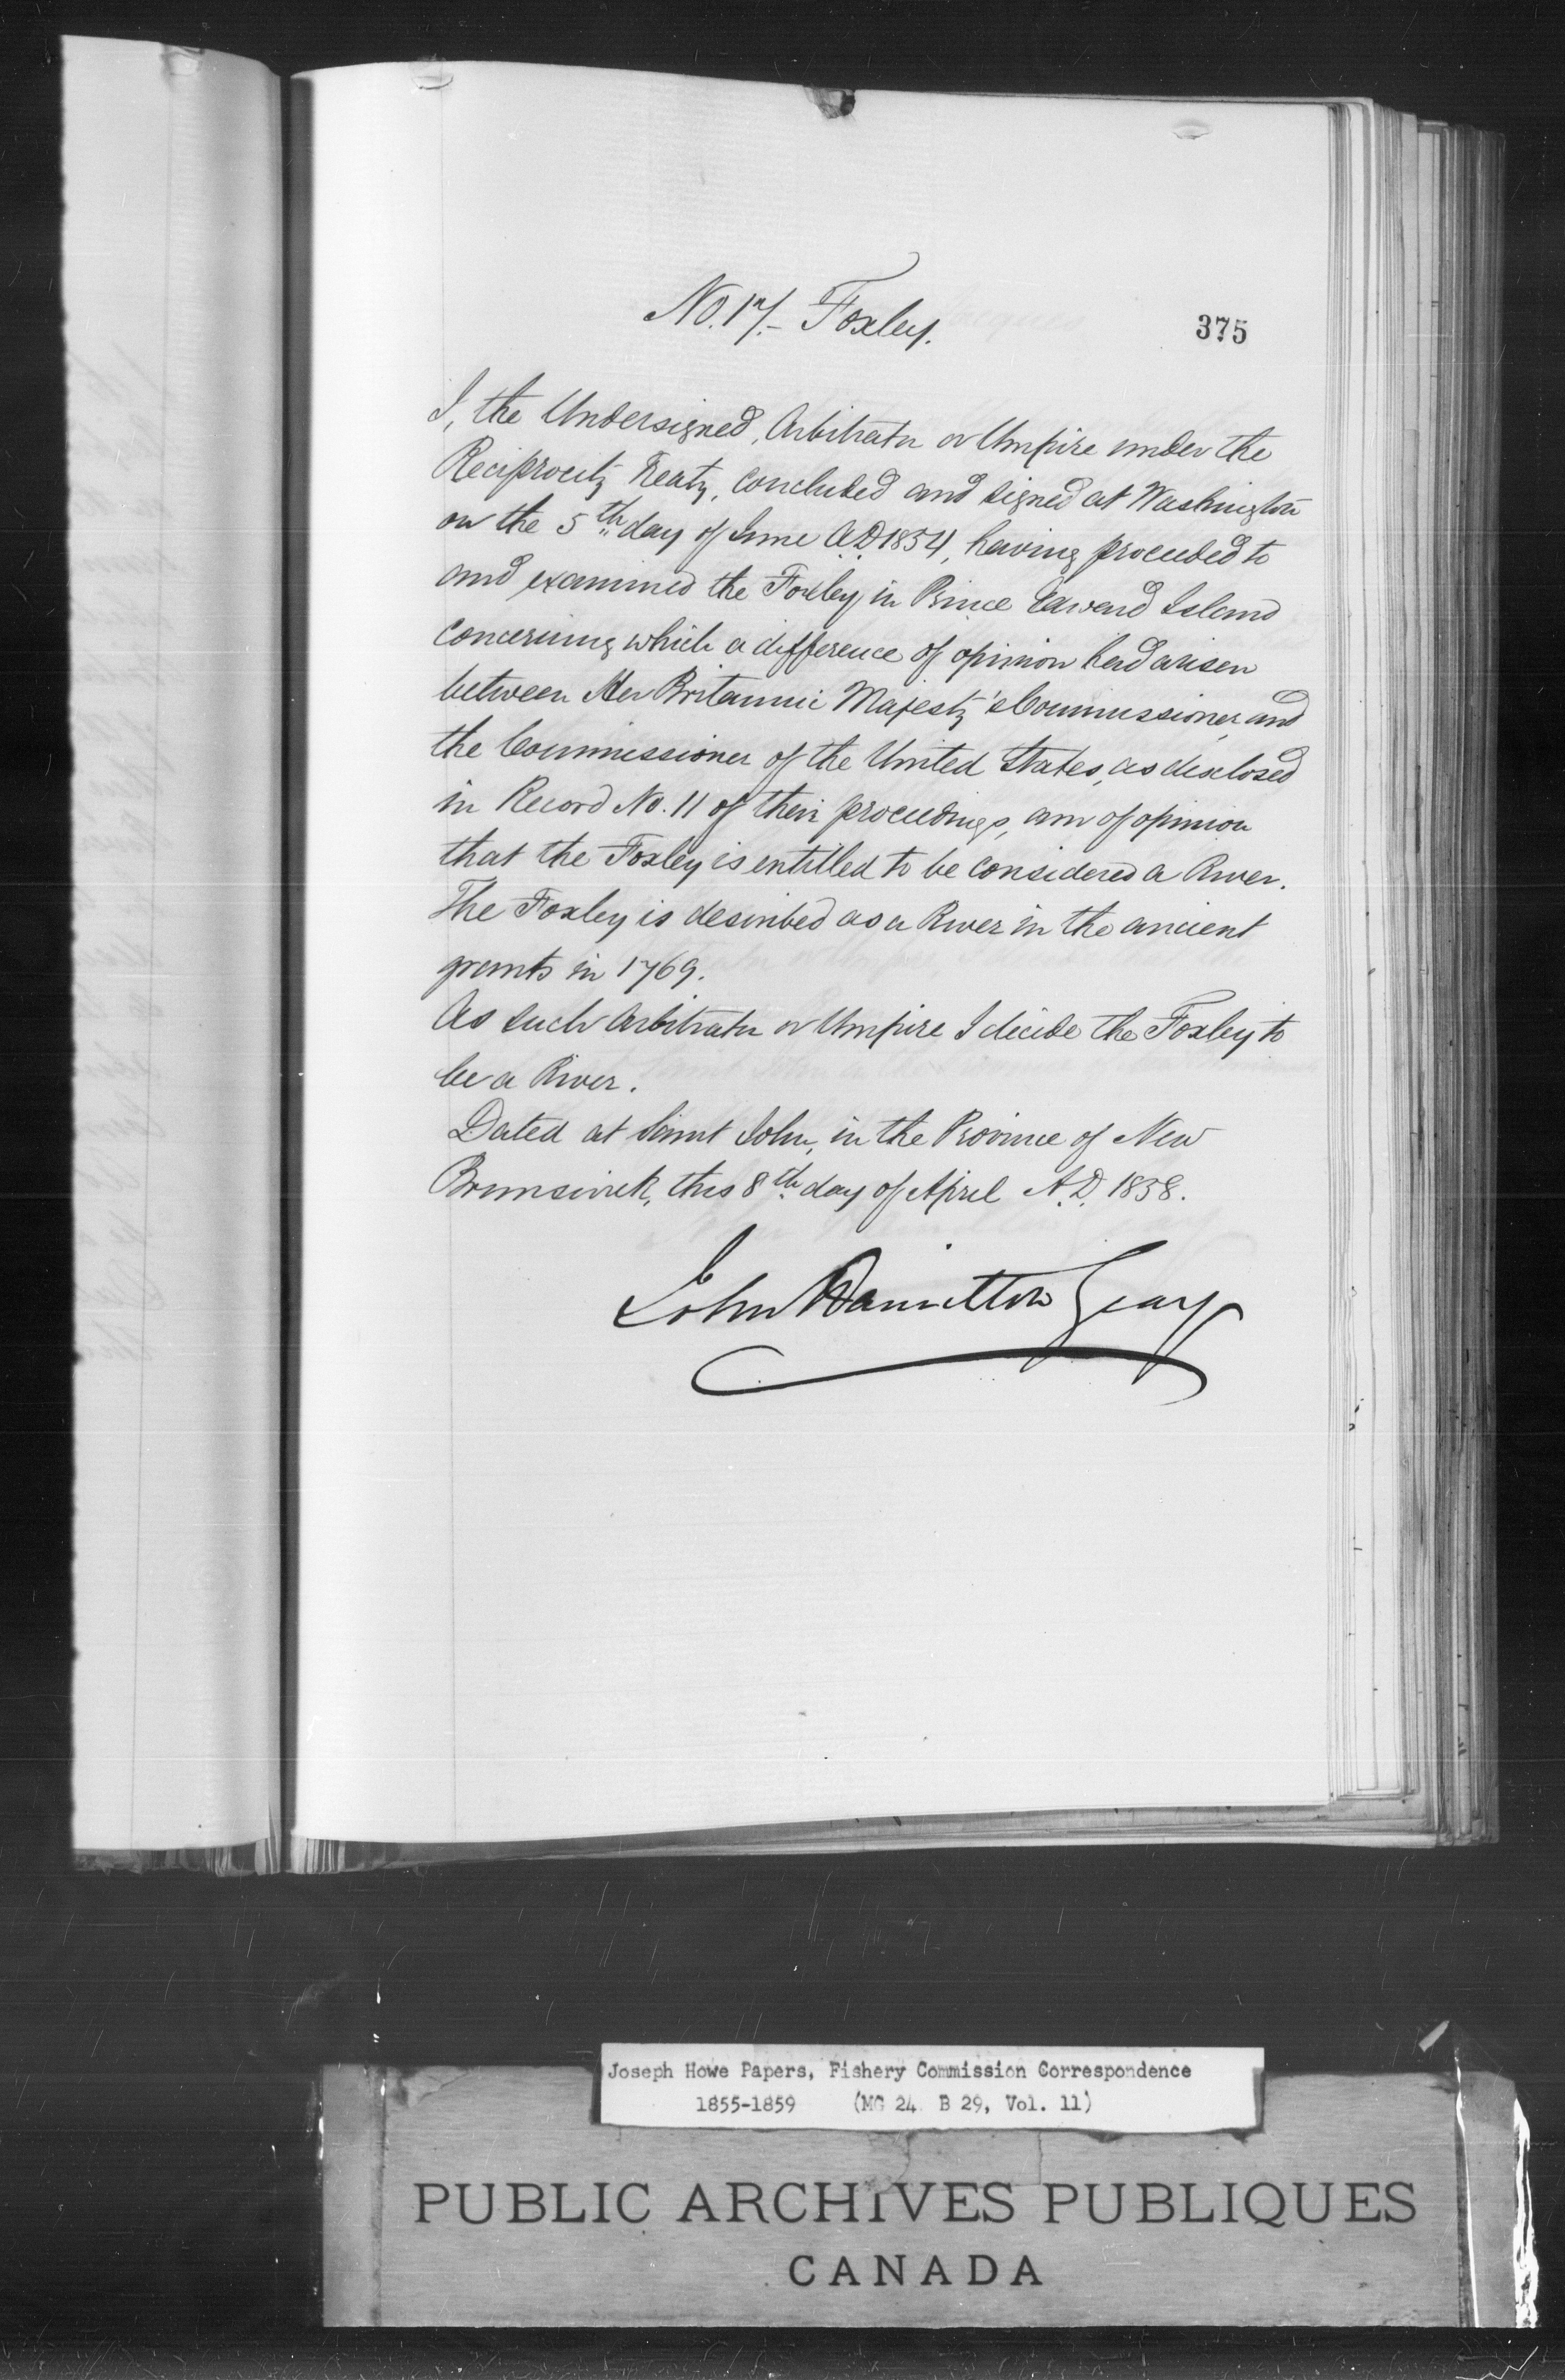 No. 17.- Foxley.
375
I, the Undersigned, Arbitrator or Umpire under the
Reciprocity Treaty, concluded and signed at Washington
on the 5th day of June A.D. 1854, having proceeded to
and examined the Foxley, in Prince Edward Island
concerning which a difference of opinion had arisen
between Her Britannic Majesty's Commissioner, and
the Commissioner of the United States, as disclosed
in Record No. 11 of their proceedings, am of opinion
that the Foxley is entitled to be considered a River.
The Foxley is described as a River in the ancient
grants in 1769.
As such Arbitrator or Umpire I decide the Foxley to
be a River.
Dated at Saint John, in the Province of New
Brunswick, this 8th day of April A.D. 1858.
John Hamilton Gray
Joseph Howe Papers, Fishery Commission Correspondence
1855-1859 (MG 24 B 29, Vol. 11)
PUBLIC ARCHIVES PUBLIQUES
CANADA